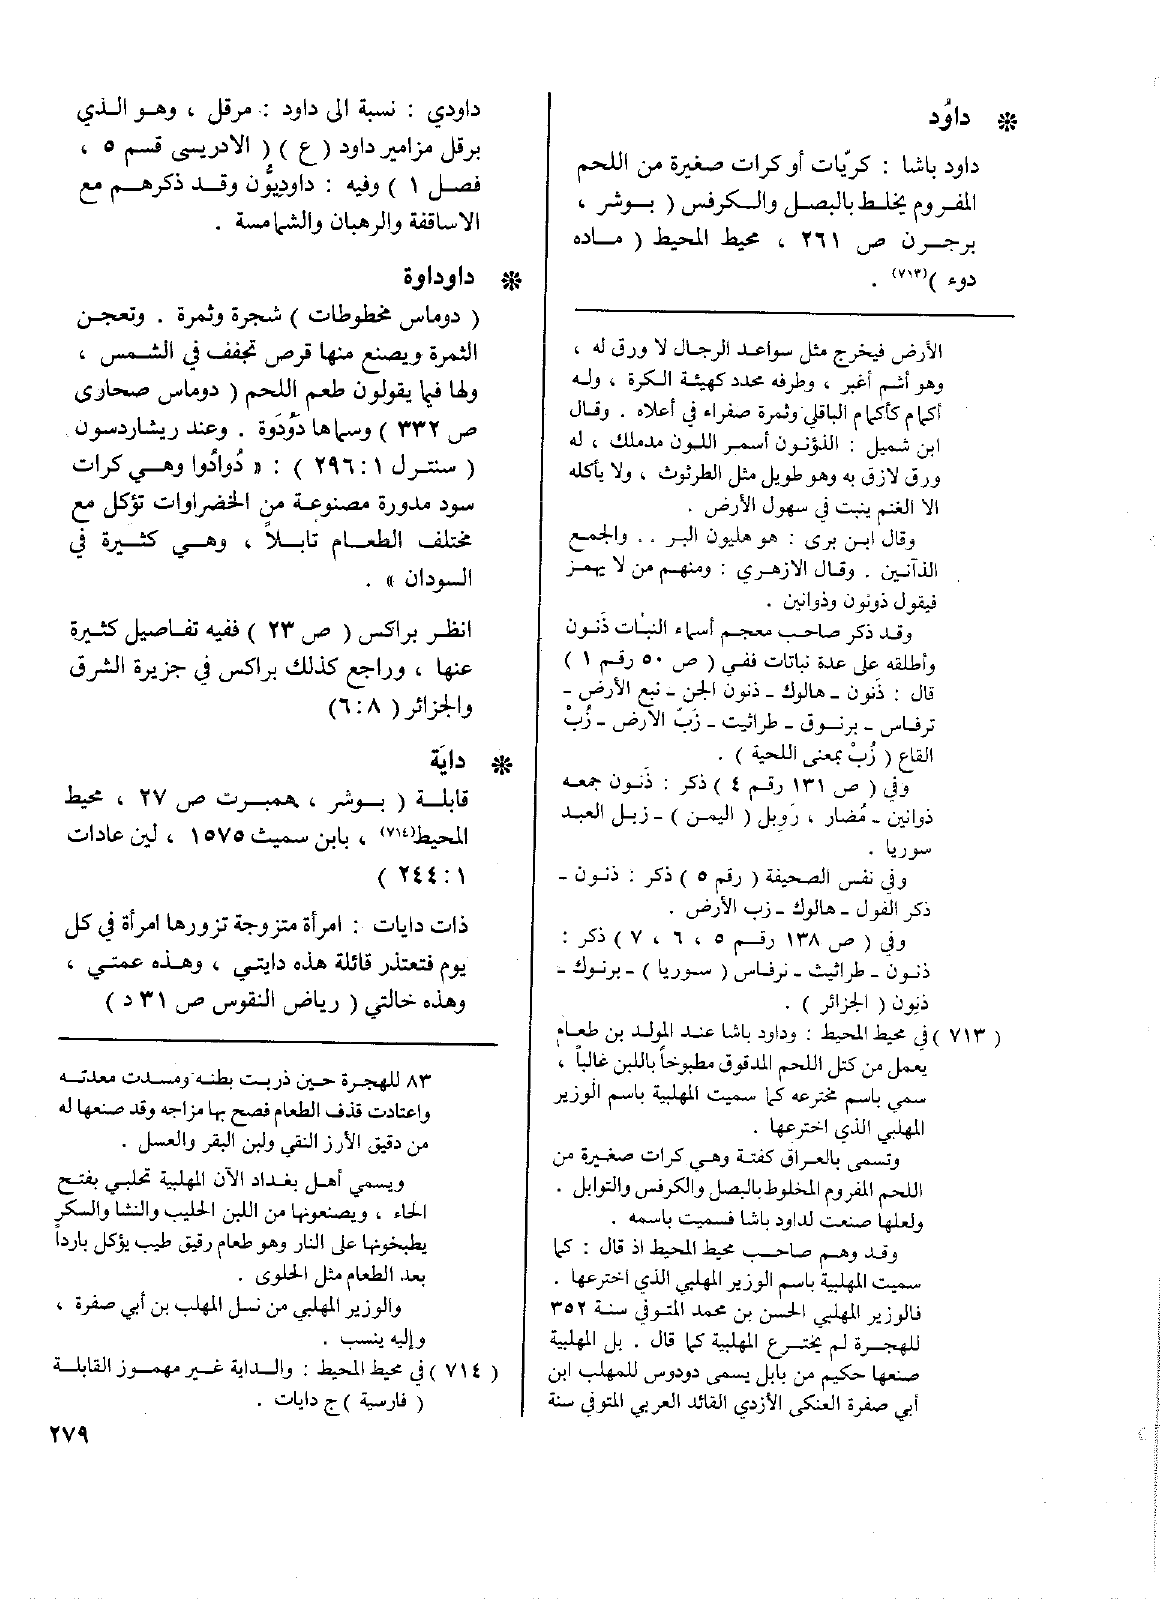 * داوُد
داود باشا : كريّات أو كرات صغيرة من اللحم
المفروم يخلط بالبصل والكرفس ( بوشر ،
برجرن ص ٢٦١ ، محيط المحيط ( ماده
دوء )(٧١٣) .
الأرض فيخرج مثل سواعد الرجال لا ورق له ،
وهو أشم أغبر ، وطرفه محدد كهيئة الكرة ، وله
أكمام كأكمام الباقلي وثمرة صفراء في أعلاه . وقال
ابن شميل : الذؤنون أسمر اللون مدملك ، له
ورق لازق به وهو طويل مثل الطرثوث ، ولا يأكله
الا الغنم ينبت في سهول الأرض .
وقال ابن برى : هو هليون البر . . والجمع
الذآنين . وقال الازهري : ومنهم من لا يهمز
فيقول ذونون وذوانين .
وقد ذكر صاحب معجم أسماء النبات ذَنون
وأطلقه على عدة نباتات ففي ( ص ٥٠ رقم ١ )
قال : ذَنون - هالوك - ذنون الجن - نبع الأرض -
ترفاس - برنوق - طراثيث - زَبّ الأرض - زُبْ
القاع ( زُبْ بمعنى اللحية ) .
وفي ( ص ١٣١ رقم ٤ ) ذكر : ذَنون جمعه
ذوانين - مُضار ، زَوبل ( اليمن ) - زبل العبد
سوريا .
وفي نفس الصحيفة ( رقم ٥ ) ذكر : ذنون -
ذكر الفول - هالوك - زب الأرض .
وفي ( ص ١٣٨ رقم ٥ ، ٦ ، ٧ ) ذكر :
ذنون - طراثيث - نرفاس ( سوريا ) - برنوك -
ذنون ( الجزائر ) .
( ٧١٣ ) في محيط المحيط : وداود باشا عند المولد بن طعام
يعمل من كتل اللحم المدقوق مطبوخاً باللبن غالباً ،
سمي باسم مخترعه كما سميت المهلبية باسم الوزير
المهلبي الذي اخترعها .
وتسمى بالعراق كفتة وهي كرات صغيرة من
اللحم المفروم المخلوط بالبصل والكرفس والتوابل .
ولعلها صنعت لداود باشا فسميت باسمه .
وقد وهم صاحب محيط المحيط اذ قال : كما
سميت المهلبية باسم الوزير المهلبي الذي اخترعها .
فالوزير المهلبي الحسن بن محمد المتوفي سنة ٣٥٢
للهجرة لم يخترع المهلبية كما قال . بل المهلبية
صنعها حكيم من بابل يسمى دودوس للمهلب ابن
أبي صفرة العتكي الأزدي القائد العربي المتوفي سنة
داودي : نسبة الى داود : مرقل ، وهو الذي
برقل مزامير داود ( ع ) ( الادريسى قسم ٥ ،
فصل ١ ) وفيه : داوديُّون وقد ذكرهم مع
الاساقفة والرهبان والشمامسة .
* داوداوة
( دوماس مخطوطات ) شجرة وثمرة . وتعجن
الثمرة ويصنع منها قرص تجفف في الشمس ،
ولها فيما يقولون طعم اللحم ( دوماس صحارى
ص ٣٣٢ ) وسماها دَوُدَوة . وعند ريشاردسون
( سنترل ١ : ٢٩٦ ) : « دُوادُوا وهي كرات
سود مدورة مصنوعة من الخضراوات تؤكل مع
مختلف الطعام تابلاً ، وهي كثيرة في
السودان » .
انظر براكس ( ص ٢٣ ) ففيه تفاصيل كثيرة
عنها ، وراجع كذلك براكس في جزيرة الشرق
والجزائر ( ٨ : ٦)
* دايَة
قابلة ( بوشر ، همبرت ص ٢٧ ، محيط
المحيط(٧١٤) ، بابن سميث ١٥٧٥ ، لين عادات
١ : ٢٤٤ )
ذات دايات : امرأة متزوجة تزورها امرأة في كل
يوم فتعتذر قائلة هذه دايتي ، وهذه عمتي ،
وهذه خالتي ( رياض النقوس ص ٣١ د )
٨٣ للهجرة حين ذربت بطنه وفسدت معدته
واعتادت قذف الطعام فصح بها مزاجه وقد صنعها له
من دقيق الأرز النقي ولبن البقر والعسل .
ويسمي أهل بغداد الآن المهلبية تحلبي بفتح
الحاء ، ويصنعونها من اللبن الحليب والنشا والسكر
يطبخونها على النار وهو طعام رقيق طيب يؤكل بارداً
بعد الطعام مثل الحلوى .
والوزير المهلبي من نسل المهلب بن أبي صفرة ،
وإليه ينسب .
( ٧١٤ ) في محيط المحيط : والداية غير مهموز القابلة
( فارسية ) ج دايات .
٢٧٩